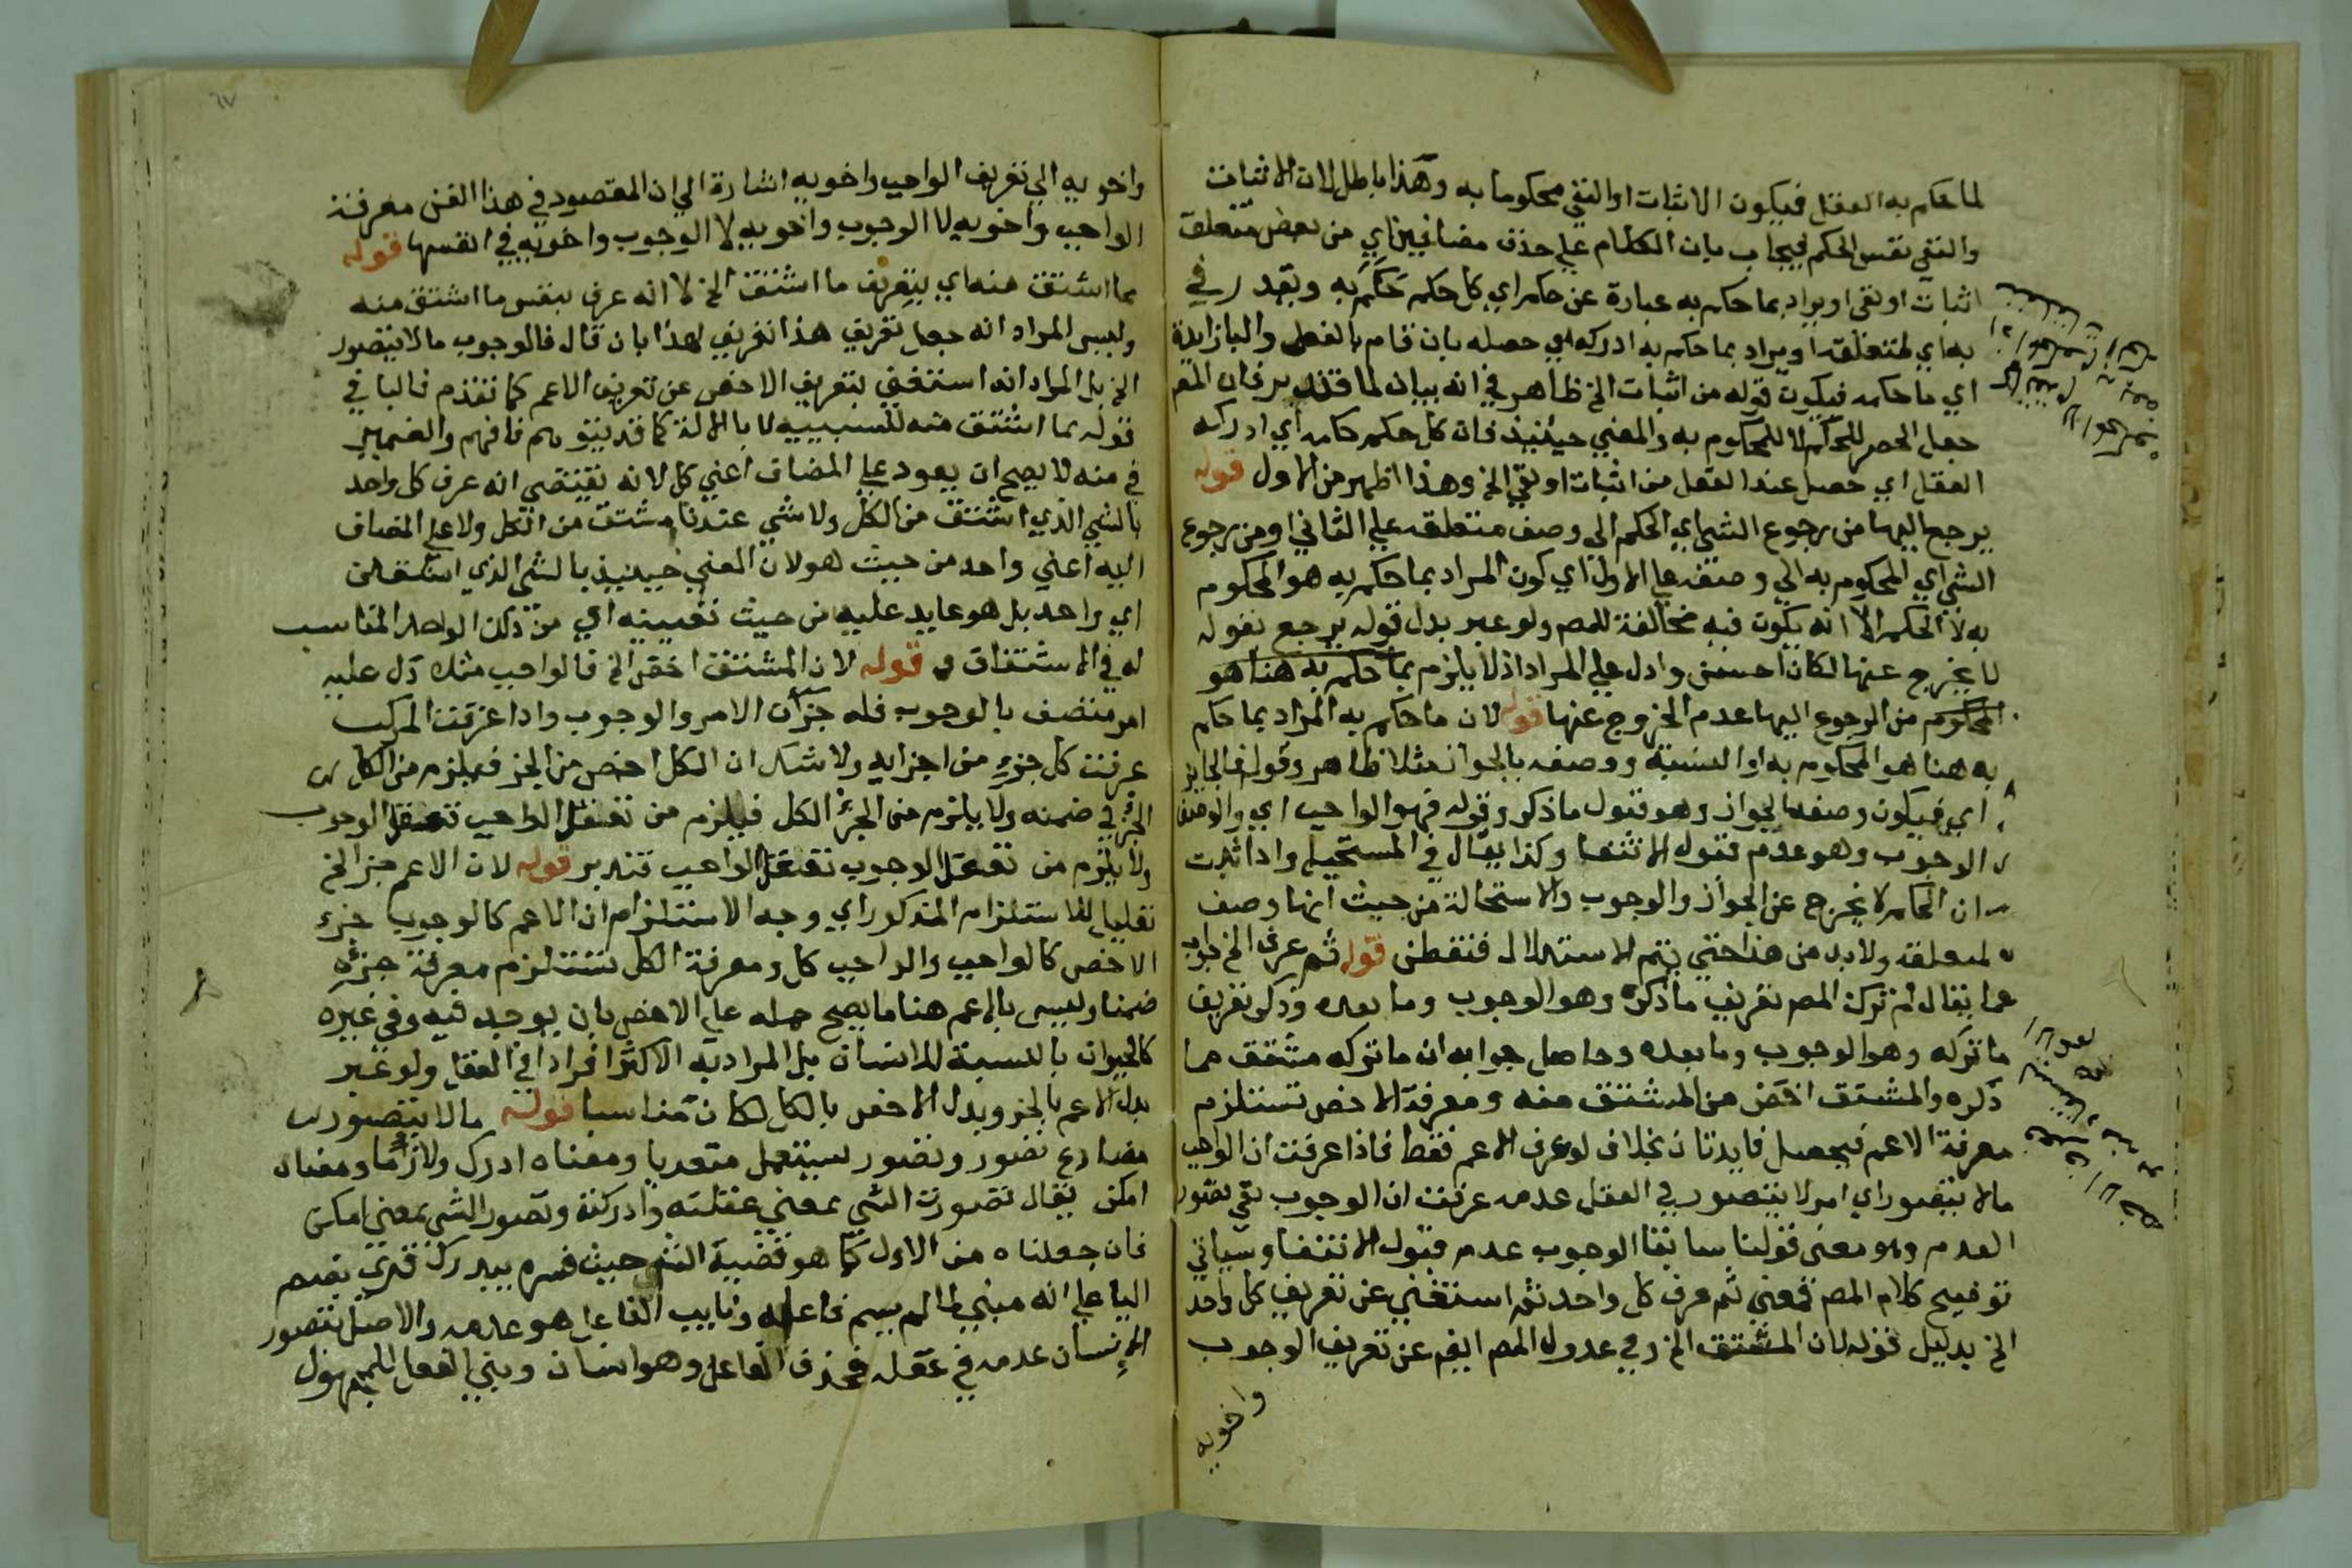 لما حكم به العقل فيكون الاثبات او النفي محكوما به وهذا باطل لان الاثبات
والنفي نفس الحكم فيجاب بان الكلام علي حذف مضافين اي من بعض متعلق
اثبات او نفي او يراد بما حكم به عبارة عن حكم اي كل حكم حكم به ويقدر في
به اي لمتعلقه او يراد بما حكم به ادركه اي حصله بان قام بالعقل والبا زايدة
اي ما حكمه فيكون قوله من اثبات الخ ظاهر في انه بيان لما فان المصم
جعل الحصر للحكم لا للمحكوم به والمعني حينئذ فان كل حكم حكمه اي ادركه
العقل اي حصل عند العقل من اثبات او نفي الخ وهذا اظهر من الاول قوله
يرجع اليها من رجوع الشي اي الحكم الي وصف متعلقه علي الثاني او من رجوع
الشي اي المحكوم به الي وصفه علي الاول اي كون المراد بما حكم به هو المحكوم
به لا الحكم الا انه يكون فيه مخالفة للمصم ولو عبر بدل قوله يرجع بقوله
لا يخرج عنها لكان احسن وادل علي المراد اذ لا يلزم بما حكم به هنا هو
المحكوم من الرجوع اليها عدم الخروج عنها قوله لان ما حكم به المراد بما حكم
به هنا هو المحكوم به او النسبة ووصفه بالجواز مثلا ظاهر وقوله فالجايز
اي فيكون وصفه الجواز وهو قبول ما ذكر وقوله فهو الواجب اي والوصف
الوجوب وهو عدم قبول الانتفا وكذا يقال في المستحيل واذا ثبت
ان الحكم لا يخرج عن الجواز والوجوب والاستحالة من حيث انها وصف
لمتعلقه ولا بد من هذا حتي يتم الاستدلال فتفطن قوله ثم عرف الخ جواب
عما يقال لم ترك المصم تعريف ما ذكره وهو الوجوب وما بعده وذكر تعريف
ما تركه وهو الوجوب وما بعده وحاصل جوابه ان ما تركه مشتق مما
ذكره والمشتق اخص من المشتق منه ومعرفة الاخص تستلزم
معرفة الاعم فيحصل فايدتان بخلاف لو عرف الاعم فقط فاذا عرفت ان الواجب
ما لا يتصور اي امر لا يتصور في العقل عدمه عرفت ان الوجوب نفي تصور
العدم وهو معني قولنا سابقا الوجوب عدم قبول الانتفا وسياتي
توضيح كلام المصم فمعني ثم عرف كل واحد ثم استغني عن تعريف كل واحد
الخ بدليل قوله لان المشتق الخ وفي عدول المصم ايضم عن تعريف الوجوب
واخويه
واخويه الي تعريف الواجب واخويه اشارة الي ان المقصود في هذا الفن معرفة
الواجب واخويه لا الوجوب واخويه لا الوجوب واخويه في انفسها قوله
بما اشتق منه اي بتعريف ما اشتق الخ لا انه عرف بنفس ما اشتق منه
وليس المراد انه جعل تعريف هذا تعريف لهذا بان قال فالوجوب ما لا يتصور
الخ بل المراد انه استغني بتعريف الاخص عن تعريف الاعم كما تقدم فالبا في
قوله بما اشتق منه للسببيه لا بالالة كما قد يتوهم فافهم والضمير
في منه لا يصح ان يعود علي المضاف اعني كل لانه يقتضي انه عرف كل واحد
بالشي الذي اشتق من الكل ولا شي عندنا مشتق من الكل ولا علي المضاف
اليه اعني واحد من حيث هو لان المعني حينيذ بالشي الذي اشتق من
اي واحد بل هو عايد عليه من حيث تعيينه اي من ذلك الواحد المناسب
له في الاشتقاق قوله لان المشتق اخص الخ فالواجب مثلا دل عليه
امر متصف بالوجوب فله جزآن الامر والوجوب واذا عرفت المركب
عرفت كل جزء من اجزايه ولا شك ان الكل اخص من الجز فيلزم من الكل
الجزء في ضمنه ولا يلزم من الجزء الكل فيلزم من تعقل الواجب تعقل الوجوب
ولا يلزم من تعقل الوجوب تعقل الواجب فتدبر قوله لان الاعم جز الخ
تعليل للاستلزام المذكور اي وجه الاستلزام ان الاعم كالوجوب جزء
الاخص كالواجب والواجب كل ومعرفة الكل تستلزم معرفة جزئه
ضمنا وليس بالاعم هنا ما يصح حمله علي الاخص بان يوجد فيه وفي غيره
كالحيوان بالنسبة للانسان بل المراد به الاكثر افرادا في العقل ولو عبر
بدل الاعم بالجز وبدل الاخص بالكل لكان مناسبا قوله ما لا يتصور
مضارع تصور وتصور يستعمل متعديا ومعناه ادرك ولازما ومعناه
امكن يقال تصورت الشي بمعني عقلته وادركته وتصور الشي بمعني امكن
فان جعلناه من الاول كما هو قضية الشرح حيث فسره بيدرك قري بضم
اليا علي انه مبني لما لم يسم فاعله ونايب الفاعل هو عدمه والاصل يتصور
الانسان عدمه في عقله فحذف الفاعل وهو انسان وبني الفعل للمجهول